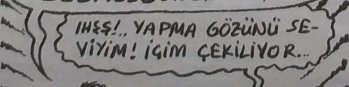 IHSS!.. YAPMA GÖZÜNÜ SE-
VİYİM! İÇİM ÇEKİLİYOR...